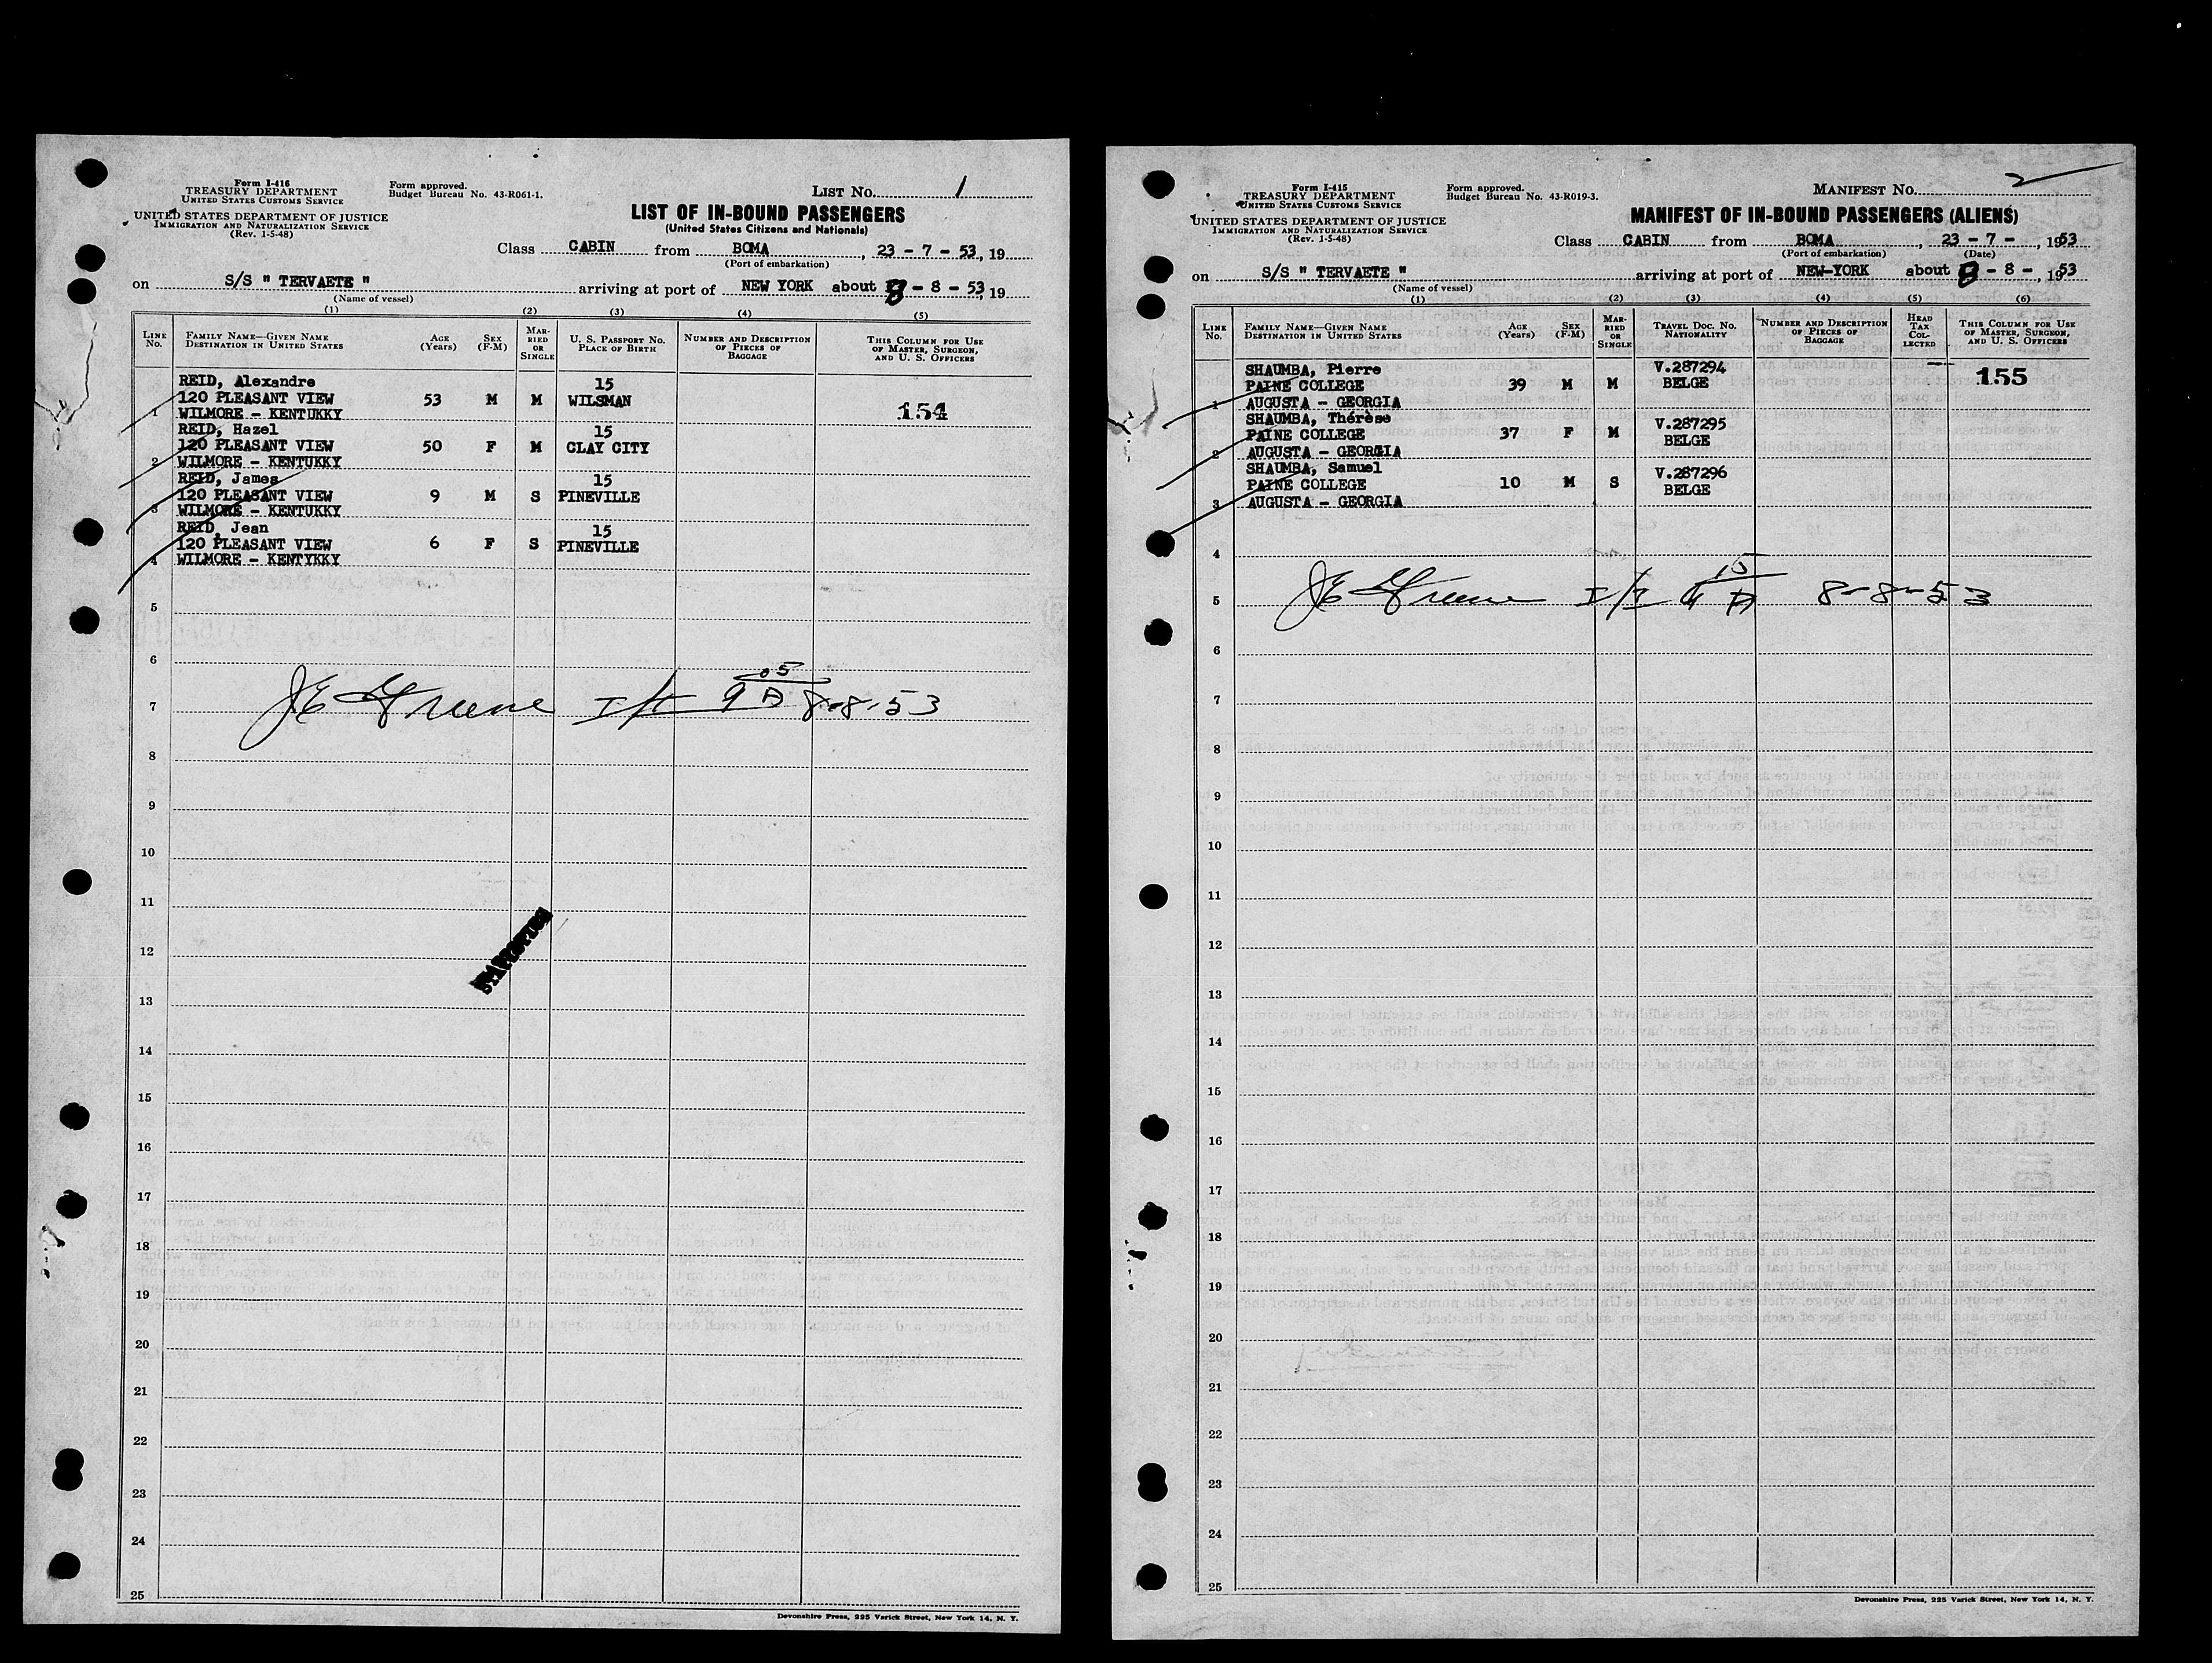 Form I-416
TREASURY DEPARTMENT
UNITED STATES CUSTOMS SERVICE
UNITED STATES DEPARTMENT OF JUSTICE
IMMIGRATION AND NATURALIZATION SERVICE
(Rev. 1-5-48)
Form approved.
Budget Bureau No. 43-R061-1.
LIST NO. 1
LIST OF IN-BOUND PASSENGERS
(United States Citizens and Nationals)
Class CABIN from BOMA, 23 - 7 - 53, 19
(Port of embarkation)
on S/S " TERVAETE " arriving at port of NEW YORK about 8 - 8 - 53, 19
(Name of vessel)
(1) (2) (3) (4) (5)
LINE NO.
FAMILY NAME—GIVEN NAME
DESTINATION IN UNITED STATES
AGE (Years)
SEX (F-M)
MARRIED OR SINGLE
U. S. PASSPORT NO.
PLACE OF BIRTH
NUMBER AND DESCRIPTION OF PIECES OF BAGGAGE
THIS COLUMN FOR USE OF MASTER, SURGEON, AND U. S. OFFICERS
REID, Alexandre 15
120 PLEASANT VIEW 53 M M WILSMAN
1 WILMORE - KENTUKKY 154
REID, Hazel 15
120 PLEASANT VIEW 50 F M CLAY CITY
2 WILMORE - KENTUKKY
REID, James 15
120 PLEASANT VIEW 9 M S PINEVILLE
3 WILMORE - KENTUKKY
REID, Jean 15
120 PLEASANT VIEW 6 F S PINEVILLE
4 WILMORE - KENTYKKY
5
6
7 JE Greene I/I 9 05 A 8-8-53
8
9
10
11
12
13
14
15
16
17
18
19
20
21
22
23
24
25
Devonshire Press, 225 Varick Street, New York 14, N. Y.
Form I-415
TREASURY DEPARTMENT
UNITED STATES CUSTOMS SERVICE
UNITED STATES DEPARTMENT OF JUSTICE
IMMIGRATION AND NATURALIZATION SERVICE
(Rev. 1-5-48)
Form approved.
Budget Bureau No. 43-R019-3.
MANIFEST NO. 2
MANIFEST OF IN-BOUND PASSENGERS (ALIENS)
Class CABIN from BOMA, 23 - 7 -, 1953
(Port of embarkation) (Date)
on S/S " TERVAETE " arriving at port of NEW-YORK about 8 - 8 -, 1953
(Name of vessel)
(1) (2) (3) (4) (5) (6)
LINE NO.
FAMILY NAME—GIVEN NAME
DESTINATION IN UNITED STATES
AGE (Years)
SEX (F-M)
MARRIED OR SINGLE
TRAVEL DOC. NO.
NATIONALITY
NUMBER AND DESCRIPTION OF PIECES OF BAGGAGE
HEAD TAX COLLECTED
THIS COLUMN FOR USE OF MASTER, SURGEON, AND U. S. OFFICERS
SHAUMBA, Pierre V.287294 155
PAINE COLLEGE 39 M M BELGE
1 AUGUSTA - GEORGIA
SHAUMBA, Thérèse V.287295
PAINE COLLEGE 37 F M BELGE
2 AUGUSTA - GEORGIA
SHAUMBA, Samuel V.287296
PAINE COLLEGE 10 M S BELGE
3 AUGUSTA - GEORGIA
4
5 JE Greene I/I 9 15 A 8-8-53
6
7
8
9
10
11
12
13
14
15
16
17
18
19
20
21
22
23
24
25
Devonshire Press, 225 Varick Street, New York 14, N. Y.